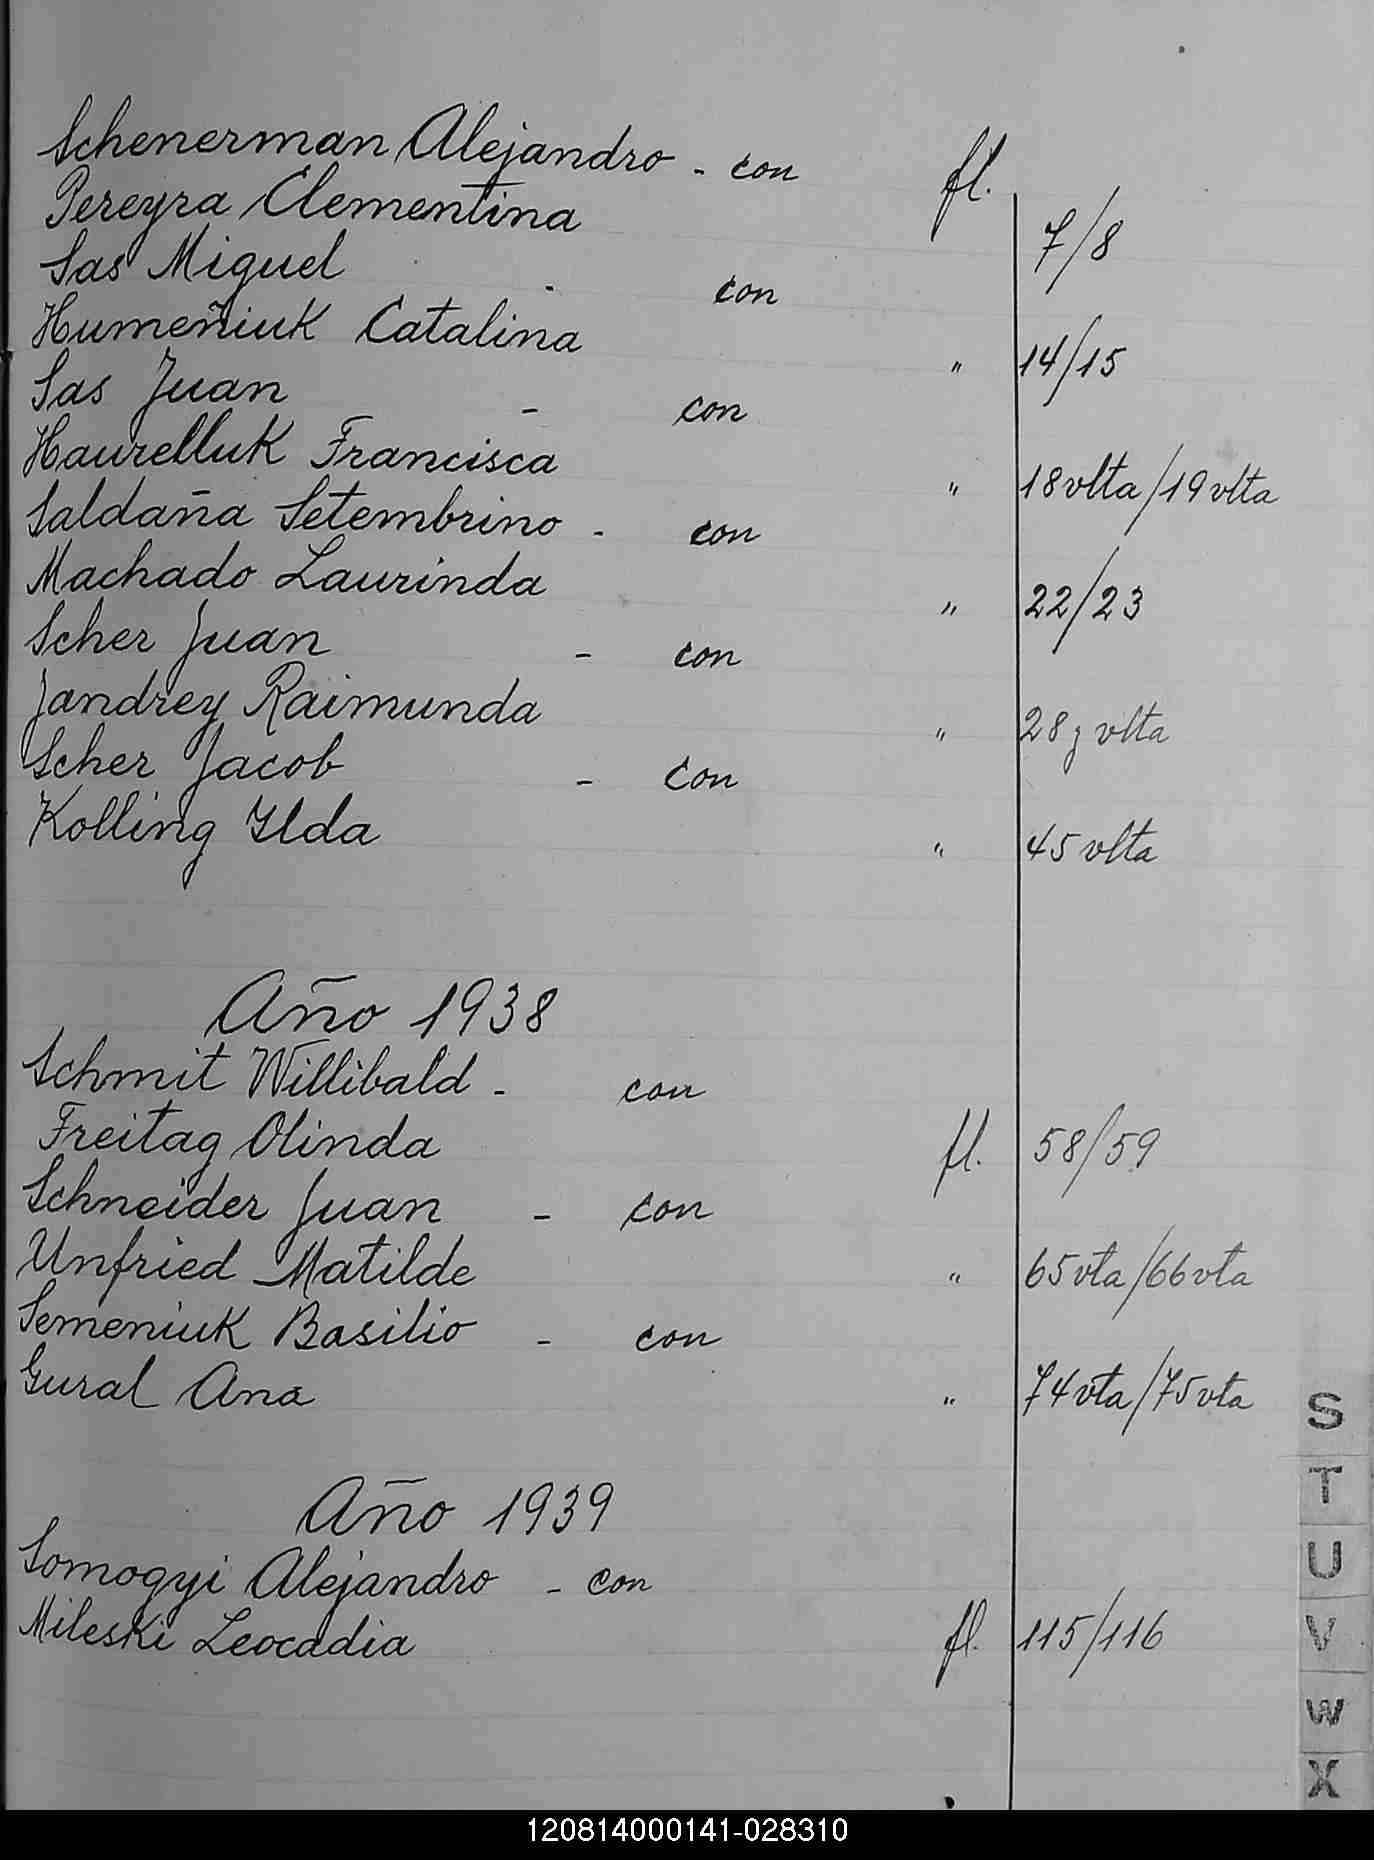 Schenerman Alejandro - con fl.
Pereyra Clementina 7/8
Sas Miguel - con
Humeñiuk Catalina " 14/15
Sas Juan - con
Haurelluk Francisca " 18vlta/19vlta
Saldaña Setembrino - con
Machado Laurinda " 22/23
Scher Juan - con
Jandrey Raimunda " 28 y vlta
Scher Jacob - con
Kolling Ylda " 45 vlta
Año 1938
Schmit Willibald - con
Freitag Olinda fl. 58/59
Schneider Juan - con
Unfried Matilde " 65vta/66vta
Semeniuk Basilio - con
Gural Ana " 74vta/75vta
Año 1939
Somogyi Alejandro - con
Mileski Leocadia fl. 115/116
S
T
U
V
W
X
120814000141-028310